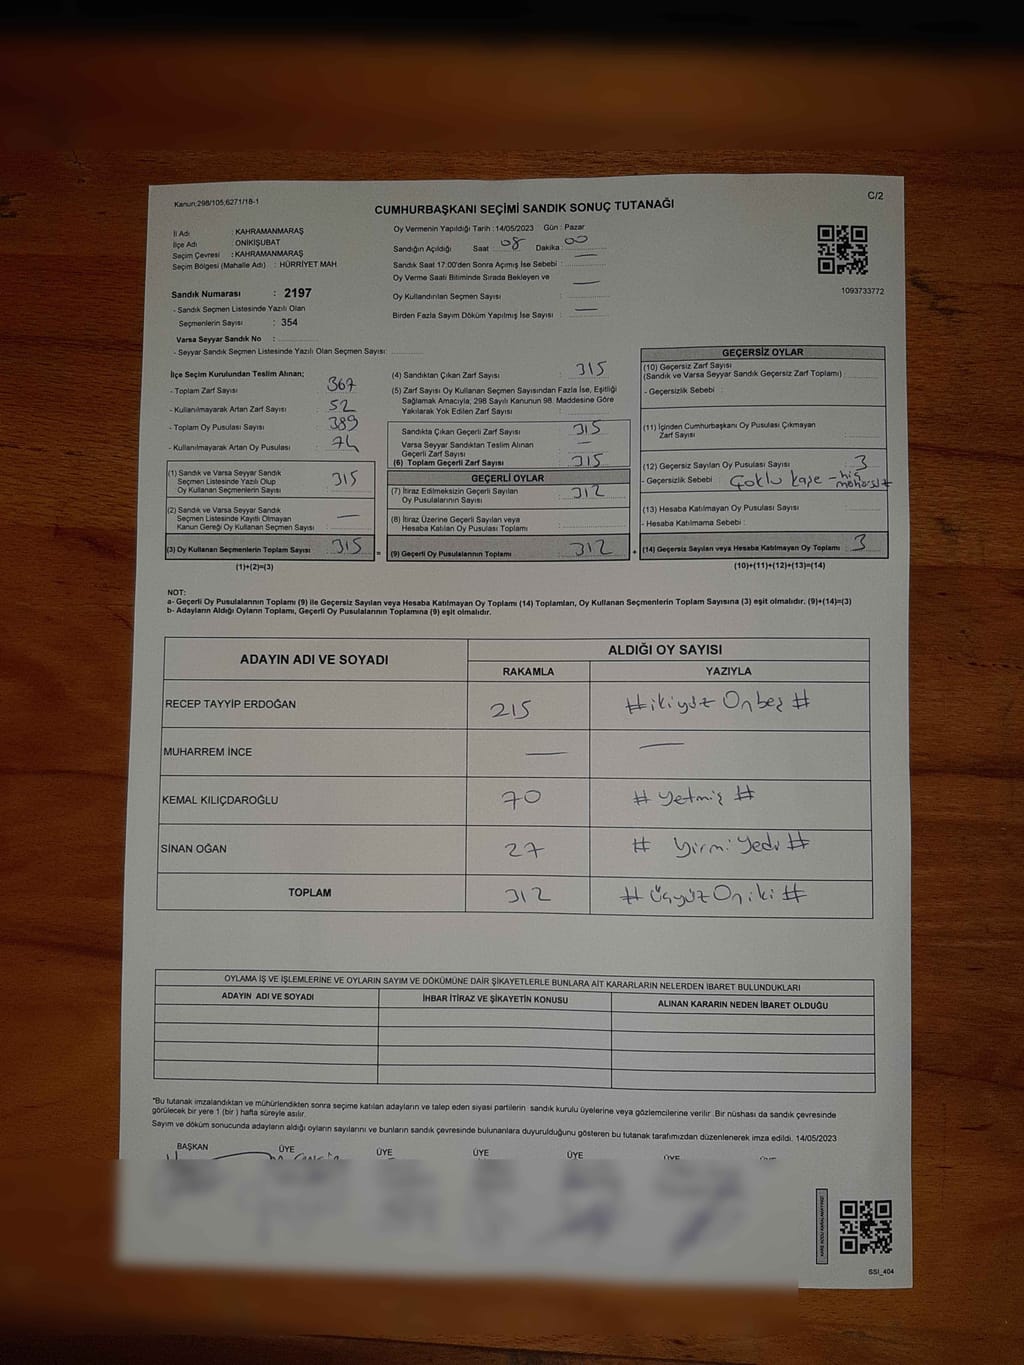 Kanun:298/105;6271/18-1
C/2
CUMHURBAŞKANI SEÇİMİ SANDIK SONUÇ TUTANAĞI
İl Adı : KAHRAMANMARAŞ
İlçe Adı : ONİKİŞUBAT
Seçim Çevresi : KAHRAMANMARAŞ
Seçim Bölgesi (Mahalle Adı) : HÜRRİYET MAH
Sandık Numarası : 2197
- Sandık Seçmen Listesinde Yazılı Olan
Seçmenlerin Sayısı : 354
Varsa Seyyar Sandık No :
- Seyyar Sandık Seçmen Listesinde Yazılı Olan Seçmen Sayısı:
Oy Vermenin Yapıldığı Tarih : 14/05/2023 Gün : Pazar
Sandığın Açıldığı Saat : 08 Dakika : 00
Sandık Saat 17:00'den Sonra Açımış İse Sebebi : —
Oy Verme Saati Bitiminde Sırada Bekleyen ve
Oy Kullandırılan Seçmen Sayısı : —
Birden Fazla Sayım Döküm Yapılmış İse Sayısı : —
1093733772
İlçe Seçim Kurulundan Teslim Alınan;
- Toplam Zarf Sayısı : 367
- Kullanılmayarak Artan Zarf Sayısı : 52
- Toplam Oy Pusulası Sayısı : 389
- Kullanılmayarak Artan Oy Pusulası : 74
(1) Sandık ve Varsa Seyyar Sandık
Seçmen Listesinde Yazılı Olup
Oy Kullanan Seçmenlerin Sayısı : 315
(2) Sandık ve Varsa Seyyar Sandık
Seçmen Listesinde Kayıtlı Olmayan
Kanun Gereği Oy Kullanan Seçmen Sayısı : —
(3) Oy Kullanan Seçmenlerin Toplam Sayısı : 315 =
(1)+(2)=(3)
(4) Sandıktan Çıkan Zarf Sayısı : 315
(5) Zarf Sayısı Oy Kullanan Seçmen Sayısından Fazla İse, Eşitliği
Sağlamak Amacıyla; 298 Sayılı Kanunun 98. Maddesine Göre
Yakılarak Yok Edilen Zarf Sayısı :
Sandıkta Çıkan Geçerli Zarf Sayısı : 315
Varsa Seyyar Sandıktan Teslim Alınan
Geçerli Zarf Sayısı : —
(6) Toplam Geçerli Zarf Sayısı : 315
GEÇERLİ OYLAR
(7) İtiraz Edilmeksizin Geçerli Sayılan
Oy Pusulalarının Sayısı : 312
(8) İtiraz Üzerine Geçerli Sayılan veya
Hesaba Katılan Oy Pusulası Toplamı :
(9) Geçerli Oy Pusulalarının Toplamı : 312 +
GEÇERSİZ OYLAR
(10) Geçersiz Zarf Sayısı
(Sandık ve Varsa Seyyar Sandık Geçersiz Zarf Toplamı) :
- Geçersizlik Sebebi :
(11) İçinden Cumhurbaşkanı Oy Pusulası Çıkmayan
Zarf Sayısı :
(12) Geçersiz Sayılan Oy Pusulası Sayısı : 3
- Geçersizlik Sebebi : Çoklu kaşe - hiç
(13) Hesaba Katılmayan Oy Pusulası Sayısı :
- Hesaba Katılmama Sebebi :
(14) Geçersiz Sayılan veya Hesaba Katılmayan Oy Toplamı : 3
(10)+(11)+(12)+(13)=(14)
NOT:
a- Geçerli Oy Pusulalarının Toplamı (9) ile Geçersiz Sayılan veya Hesaba Katılmayan Oy Toplamı (14) Toplamları, Oy Kullanan Seçmenlerin Toplam Sayısına (3) eşit olmalıdır. (9)+(14)=(3)
b- Adayların Aldığı Oyların Toplamı, Geçerli Oy Pusulalarının Toplamına (9) eşit olmalıdır.
ADAYIN ADI VE SOYADI ALDIĞI OY SAYISI
RAKAMLA YAZIYLA
RECEP TAYYİP ERDOĞAN 215 #ikiyüz Onbeş #
MUHARREM İNCE — —
KEMAL KILIÇDAROĞLU 70 # yetmiş #
SİNAN OĞAN 27 # yirmi yedi #
TOPLAM 312 # üçyüz Oniki #
OYLAMA İŞ VE İŞLEMLERİNE VE OYLARIN SAYIM VE DÖKÜMÜNE DAİR ŞİKAYETLERLE BUNLARA AİT KARARLARIN NELERDEN İBARET BULUNDUKLARI
ADAYIN ADI VE SOYADI İHBAR İTİRAZ VE ŞİKAYETİN KONUSU ALINAN KARARIN NEDEN İBARET OLDUĞU
"Bu tutanak imzalandıktan ve mühürlendikten sonra seçime katılan adayların ve talep eden siyasi partilerin sandık kurulu üyelerine veya gözlemcilerine verilir. Bir nüshası da sandık çevresinde
görülecek bir yere 1 (bir ) hafta süreyle asılır.
Sayım ve döküm sonucunda adayların aldığı oyların sayılarını ve bunların sandık çevresinde bulunanlara duyurulduğunu gösteren bu tutanak tarafımızdan düzenlenerek imza edildi. 14/05/2023
BAŞKAN ÜYE ÜYE ÜYE ÜYE ÜYE ÜYE
KARE KODU KARALAMAYINIZ!
SSI_404